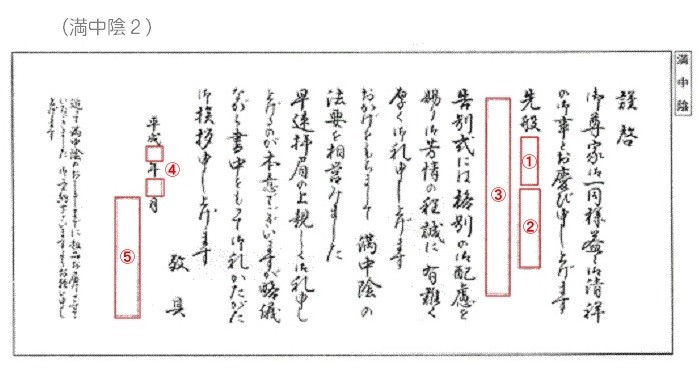 (満中陰2)
満中陰
謹啓
御尊家御一同様益々御清祥
の御事とお慶び申し上げます
先般 ① ②
③
告別式には格別の御配慮を
賜り御芳情の程誠に有難く
厚く御礼申し上げます
おかげをもちまして 満中陰の
法要を相営みました
早速拝眉の上親しく御礼申し
上げるのが本意でございますが略儀
ながら書中をもって御礼かたがた
御挨拶申し上げます
敬具
平成 年 月 ④
⑤
追って 満中陰のおしるしまでに粗品お届け
上げます